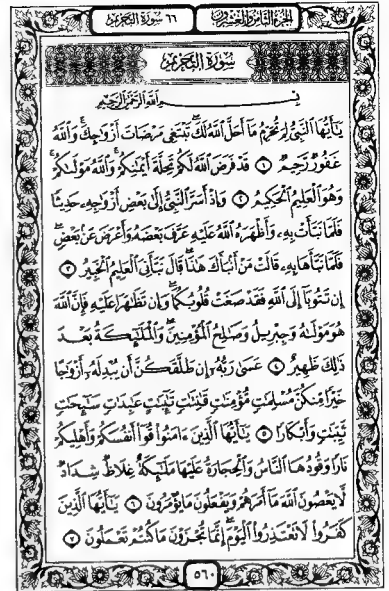 الجزء الثامن والعشرون
٦٦ سورة التحريم
سورة التحريم
بسم الله الرحمن الرحيم
يَٰٓأَيُّهَا ٱلنَّبِيُّ لِمَ تُحَرِّمُ مَآ أَحَلَّ ٱللَّهُ لَكَۖ تَبْتَغِى مَرْضَاتَ أَزْوَٰجِكَۚ وَٱللَّهُ
غَفُورٌ رَّحِيمٌ ١ قَدْ فَرَضَ ٱللَّهُ لَكُمْ تَحِلَّةَ أَيْمَٰنِكُمْۚ وَٱللَّهُ مَوْلَىٰكُمْۖ
وَهُوَ ٱلْعَلِيمُ ٱلْحَكِيمُ ٢ وَإِذْ أَسَرَّ ٱلنَّبِيُّ إِلَىٰ بَعْضِ أَزْوَٰجِهِۦ حَدِيثًا
فَلَمَّا نَبَّأَتْ بِهِۦ وَأَظْهَرَهُ ٱللَّهُ عَلَيْهِ عَرَّفَ بَعْضَهُۥ وَأَعْرَضَ عَنۢ بَعْضٍۖ
فَلَمَّا نَبَّأَهَا بِهِۦ قَالَتْ مَنْ أَنۢبَأَكَ هَٰذَاۖ قَالَ نَبَّأَنِىَ ٱلْعَلِيمُ ٱلْخَبِيرُ ٣
إِن تَتُوبَآ إِلَى ٱللَّهِ فَقَدْ صَغَتْ قُلُوبُكُمَاۖ وَإِن تَظَٰهَرَا عَلَيْهِ فَإِنَّ ٱللَّهَ
هُوَ مَوْلَىٰهُ وَجِبْرِيلُ وَصَٰلِحُ ٱلْمُؤْمِنِينَۖ وَٱلْمَلَٰٓئِكَةُ بَعْدَ
ذَٰلِكَ ظَهِيرٌ ٤ عَسَىٰ رَبُّهُۥٓ إِن طَلَّقَكُنَّ أَن يُبْدِلَهُۥٓ أَزْوَٰجًا
خَيْرًا مِّنكُنَّ مُسْلِمَٰتٍ مُّؤْمِنَٰتٍ قَٰنِتَٰتٍ تَٰٓئِبَٰتٍ عَٰبِدَٰتٍ سَٰٓئِحَٰتٍ
ثَيِّبَٰتٍ وَأَبْكَارًا ٥ يَٰٓأَيُّهَا ٱلَّذِينَ ءَامَنُوا۟ قُوٓا۟ أَنفُسَكُمْ وَأَهْلِيكُمْ
نَارًا وَقُودُهَا ٱلنَّاسُ وَٱلْحِجَارَةُ عَلَيْهَا مَلَٰٓئِكَةٌ غِلَاظٌ شِدَادٌ
لَّا يَعْصُونَ ٱللَّهَ مَآ أَمَرَهُمْ وَيَفْعَلُونَ مَا يُؤْمَرُونَ ٦ يَٰٓأَيُّهَا ٱلَّذِينَ
كَفَرُوا۟ لَا تَعْتَذِرُوا۟ ٱلْيَوْمَۖ إِنَّمَا تُجْزَوْنَ مَا كُنتُمْ تَعْمَلُونَ ٧
٥٦٠